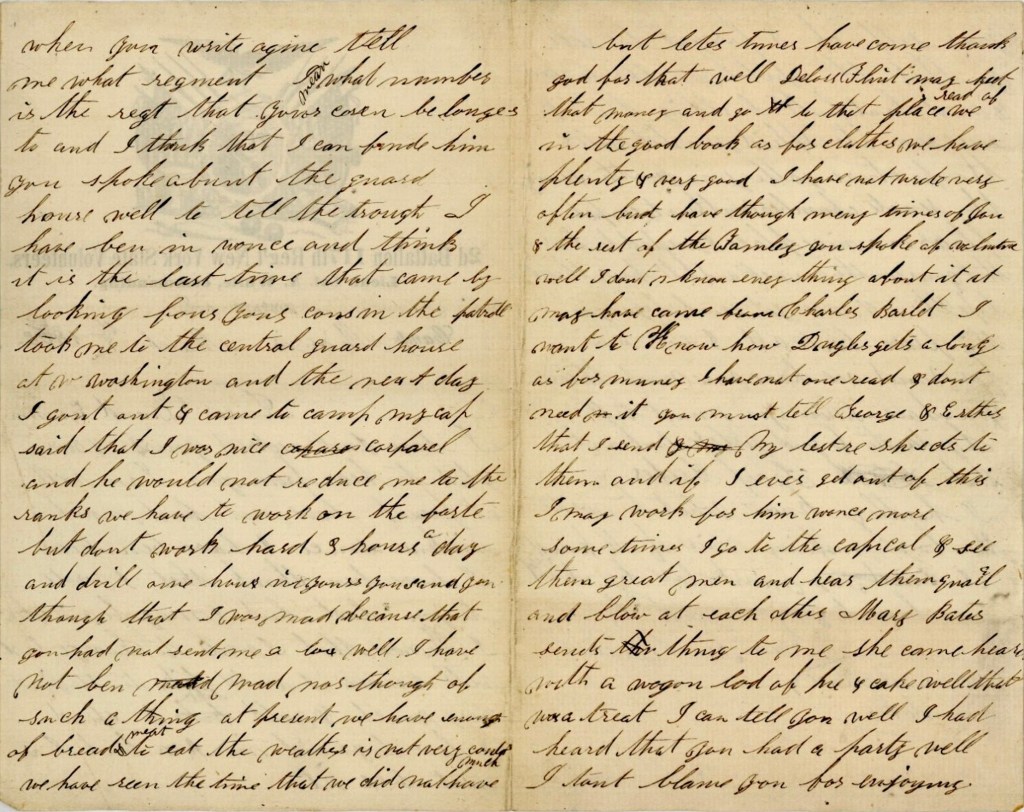 when you write agine tell
me what regment I mean what number
is the regt that yours cosen belonges
to and I think that I can finde him
you spoke abunt the guard
house well to tell the trough I
have ben in wonce and think
it is the last time that came by
looking fours yours cousin the patroll
took me to the central guard house
at washington and the next day
I gout out & came to camp my cap
said that I wos nice corparel
and he would not reduce me to the
ranks we have to work on the forte
but dont work hard 3 hours a day
and drill one hour in yours you and you
though that I wos mad because that
you had not sent me a well I have
not ben mad nor though of
such a thing at present we have enough
of bread & meat to eat the weather is not very could
we have seen the time that we did not have much
but letes times have come thank
god for that well Delose Flint may keep
that money and go to that place we read of
in the good book as for clothes we have
plenty & very good I have not wrote very
often but have though meny times of you
& the rest of the Famley you spoke of
well I dont know eney thing about it it
may have came from Charles Barlot I
want to Know how Duglas gets a long
as for muney I have not one read & dont
need it you must tell George & Esther
that I send My best re sheets to
them and if I ever get out of this
I may work for him wonce more
some times I go to the capical & see
them great men and hear them quarl
and blow at each other Mary Bates
sends thing to me she came hear
with a wogon lod of pie & cake well that
was a treat I can tell you well I had
heard that you had a party well
I tant blame you for enjoying